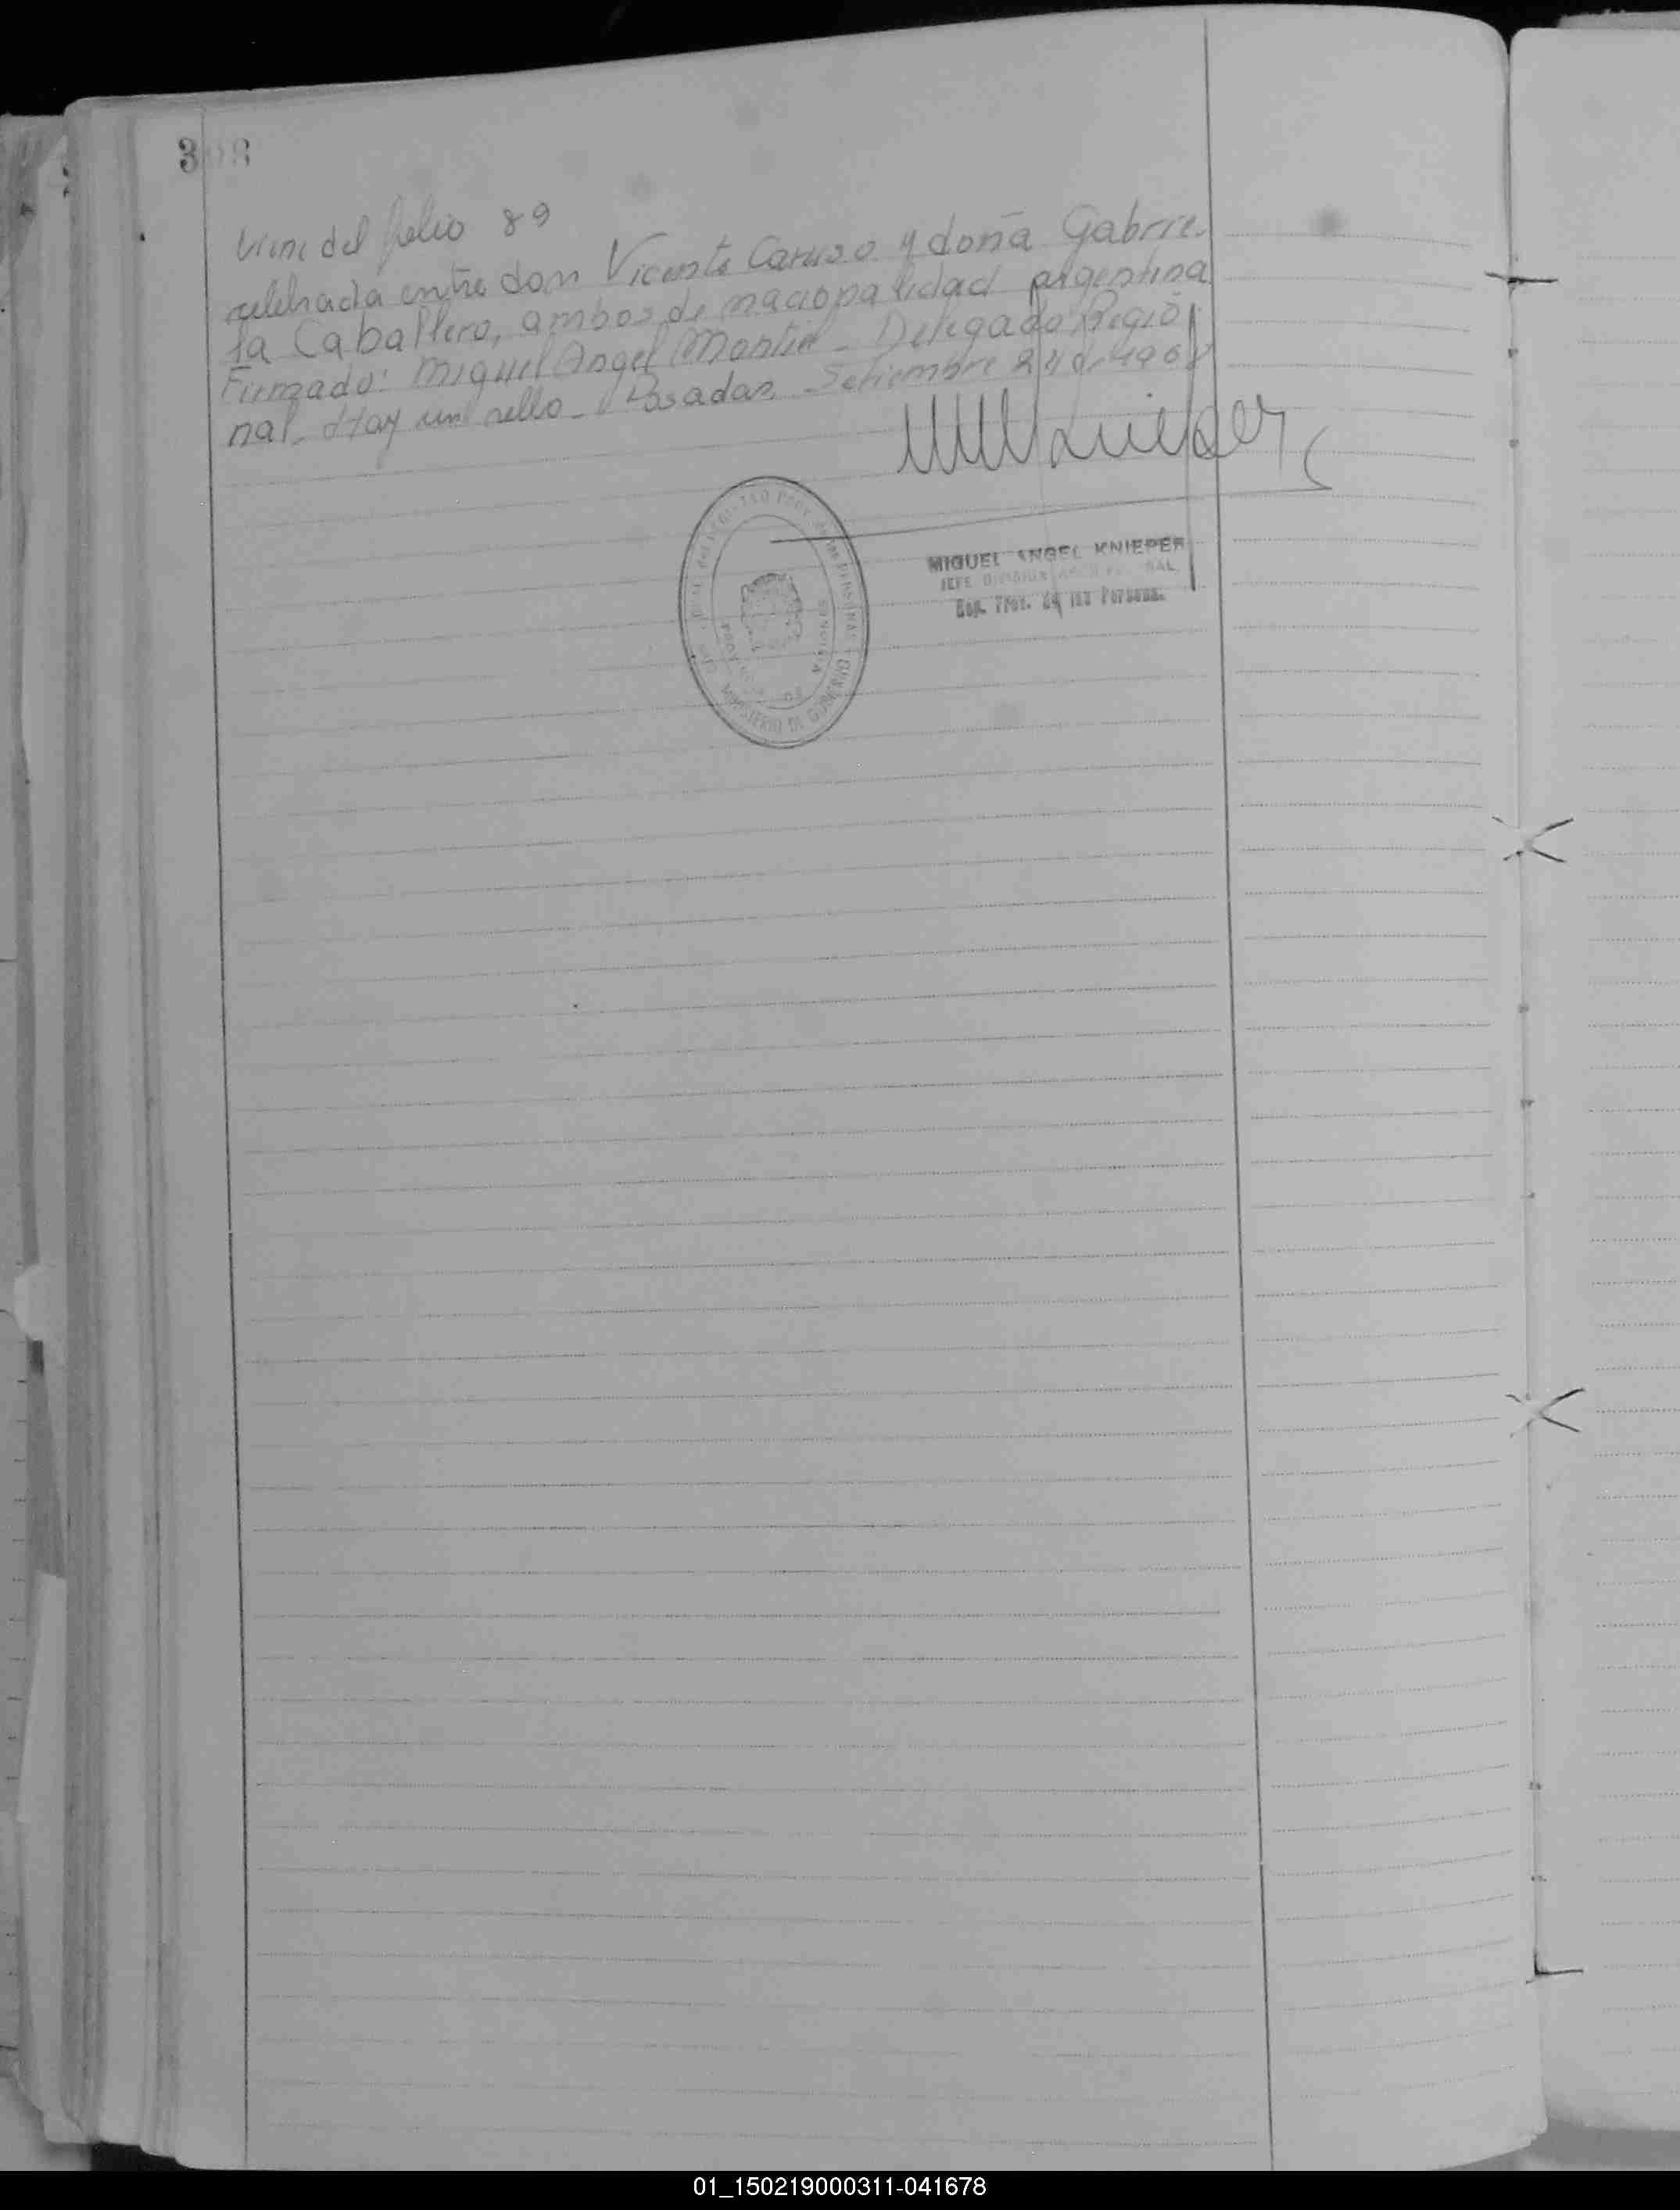 308
Viene del folio 89
celebrada entre don Vicente Caruso y doña Gabrie-
la Caballero, ambos de nacionalidad argentina
Firmado: Miguel Angel Martin - Delegado Regio
nal - Hay un sello - Posadas, Setiembre 24 de 1968
MIGUEL ANGEL KNIEPER
JEFE DIVISION
Reg. Prov. de las Personas.
REGISTRO PROV. de las PERSONAS
MINISTERIO DE GOBIERNO
01_150219000311-041678